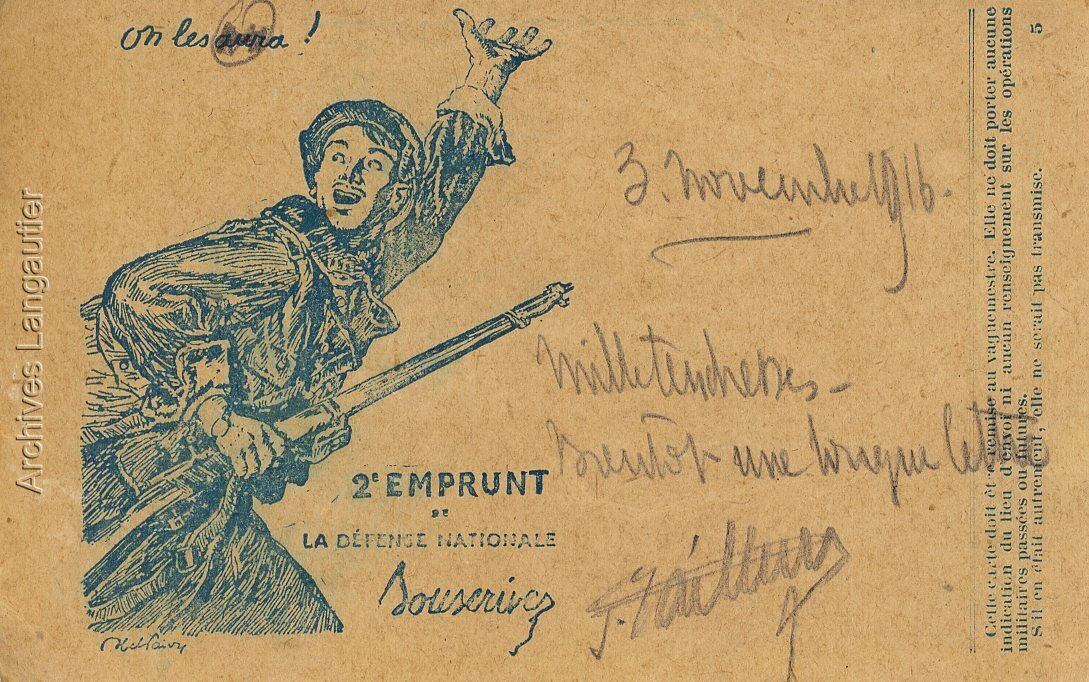 on les aura !
3. Novembre 1916.
Mille tendresses -
Bientôt une longue lettre
2e EMPRUNT
DE
LA DÉFENSE NATIONALE
Souscrivez
Cette carte doit être remise au vaguemestre. Elle ne doit porter aucune
indication du lieu d'envoi ni aucun renseignement sur les opérations
militaires passées ou futures.
S'il en était autrement, elle ne serait pas transmise.
5
Archives Langautier